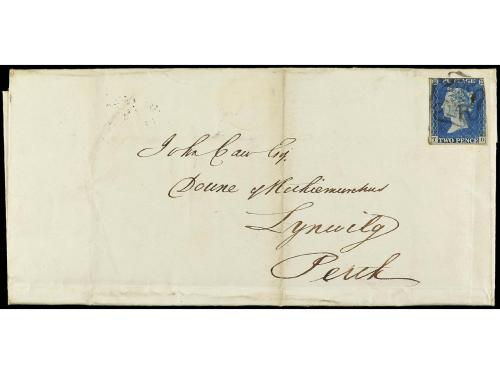 POSTAGE
TWO PENCE
John Caw Esq.
Doune of Rothiemurchus
Lynwilg
Perth